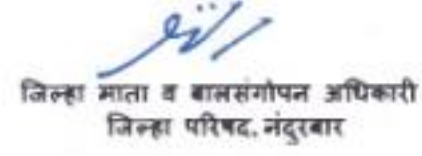 जिल्हा माता व बालसंगोपन अधिकारी
जिल्हा परिषद, नंदुरबार